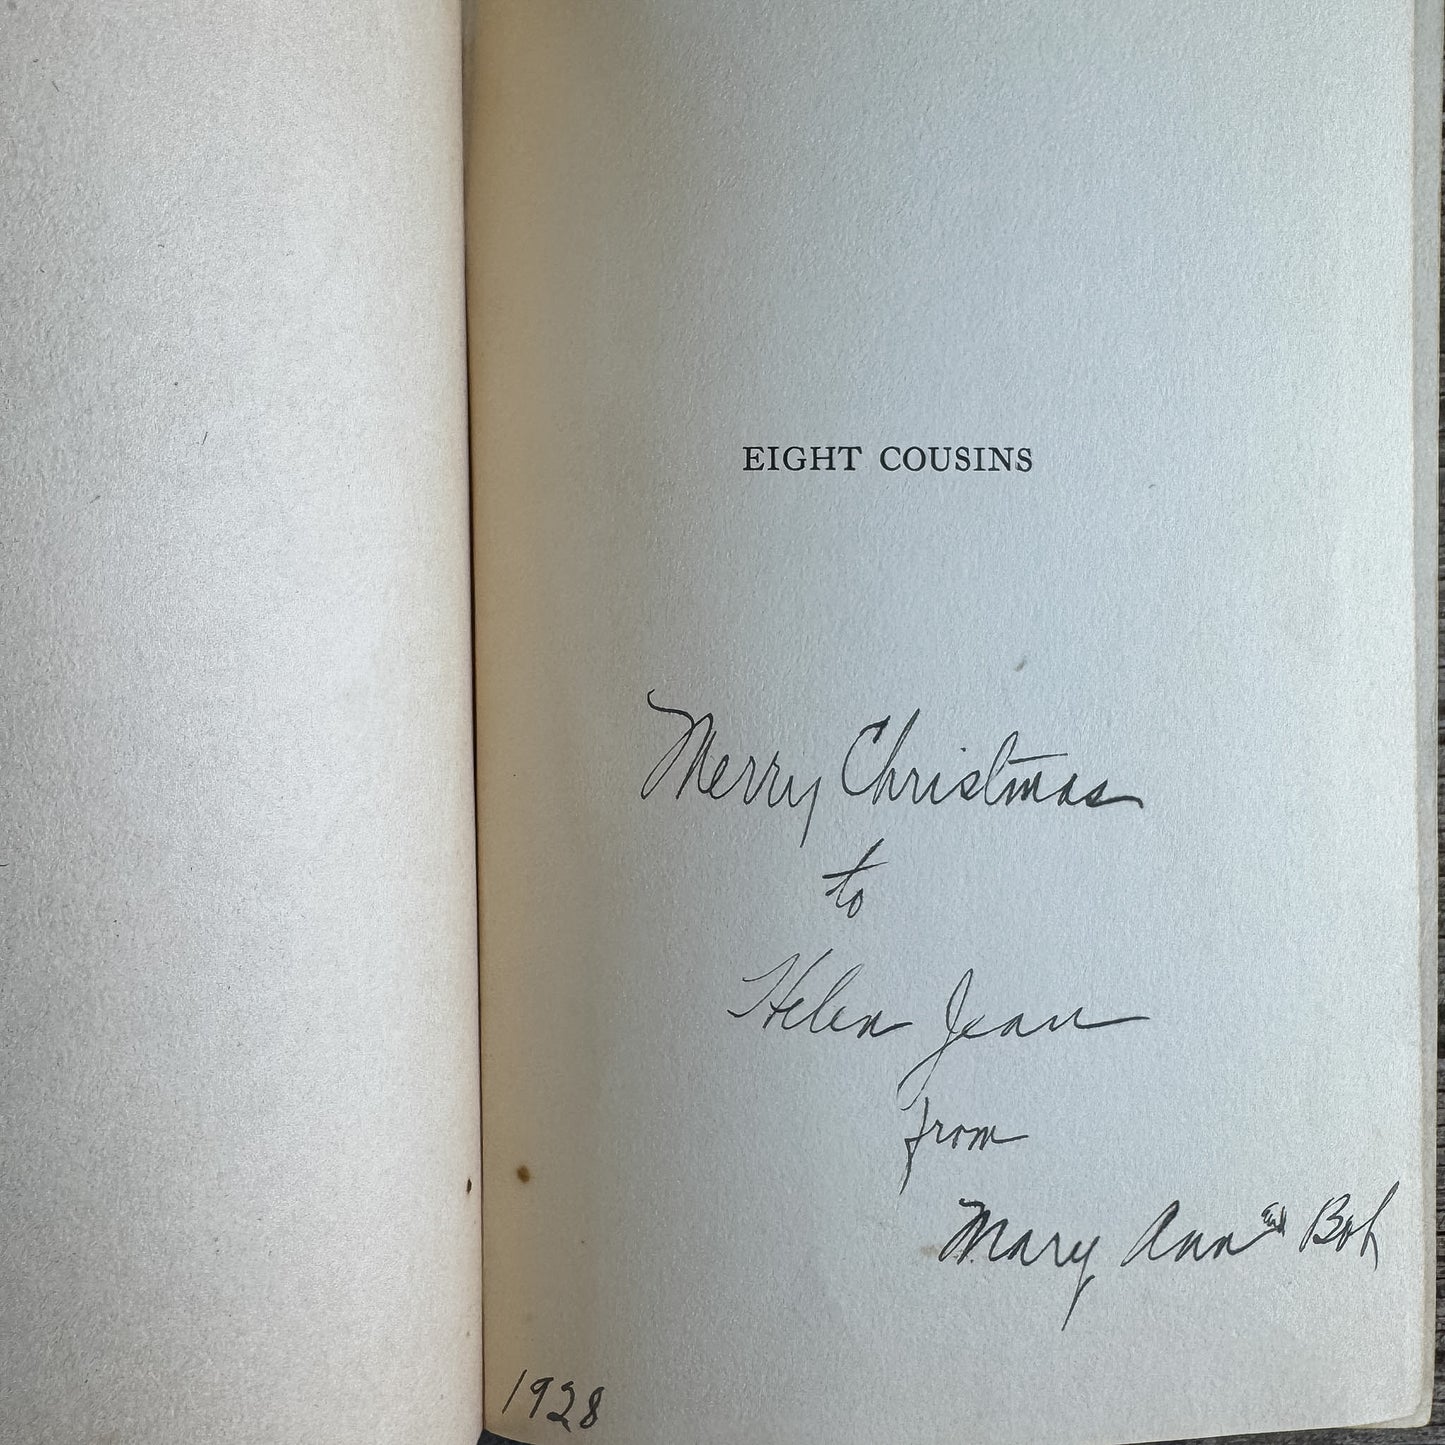 EIGHT COUSINS
Merry Christmas
to
Helen Jean
from
Mary Ann and Bob
1928